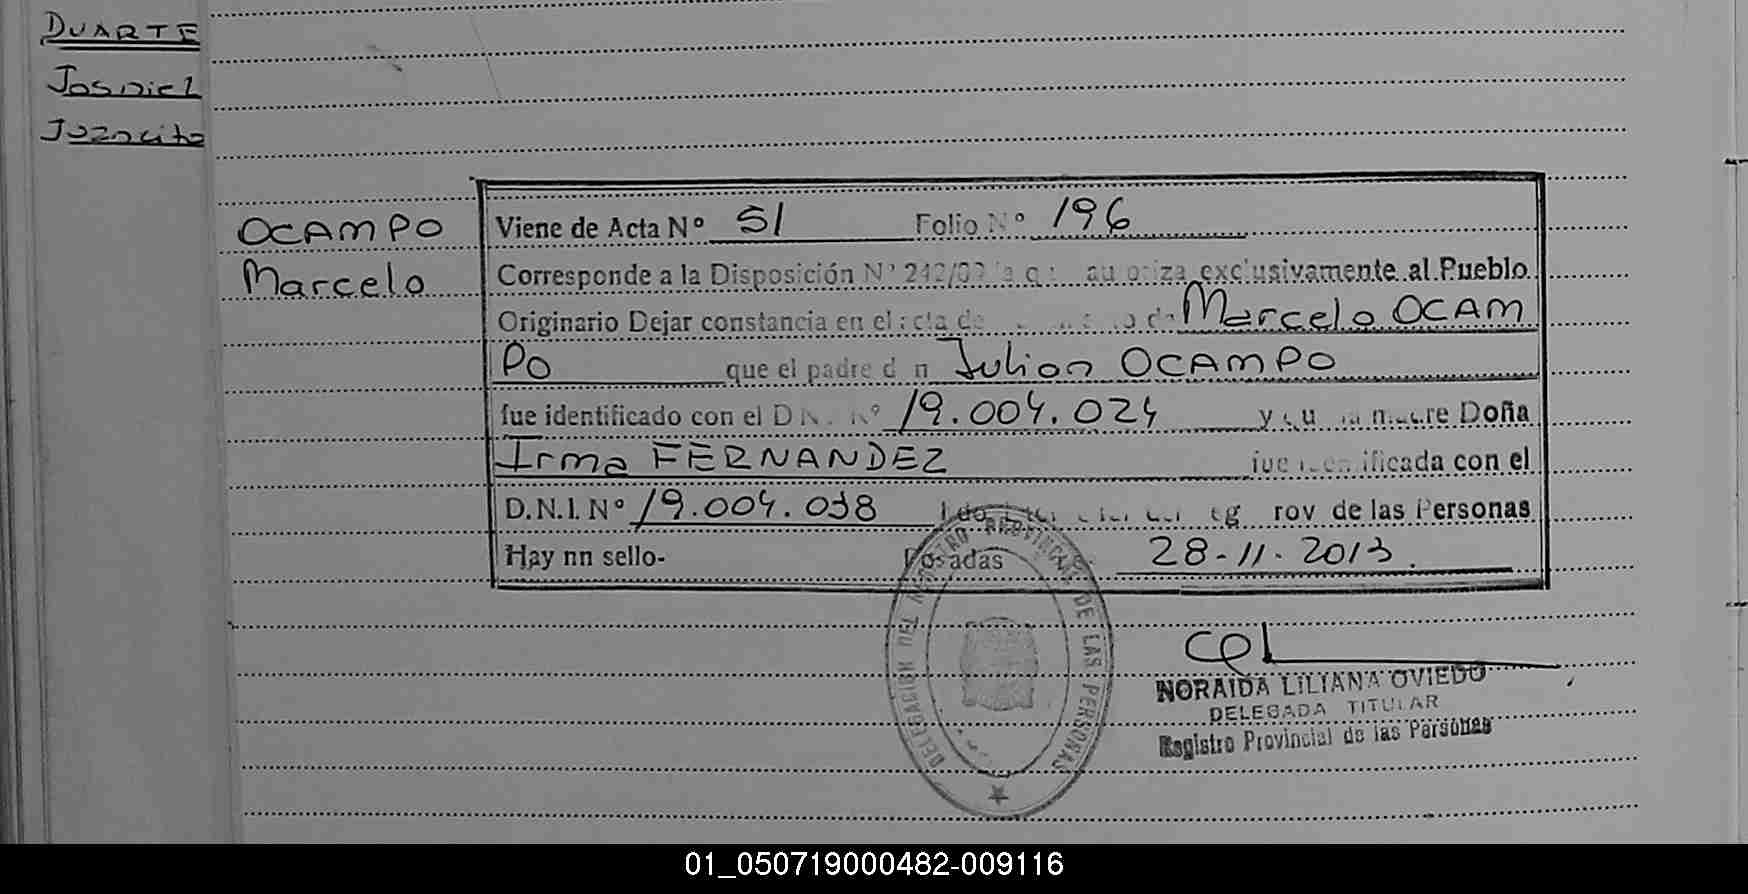 DUARTE
OCAMPO
Marcelo
Viene de Acta Nº 51 Folio Nº 196
Corresponde a la Disposición Nº 242/0 autoriza exclusivamente al Pueblo
Originario Dejar constancia en el acta de Marcelo OCAM
PO que el padre don Julion OCAMPO
fue identificado con el D.N.I. Nº 19.004.024 y que la madre Doña
Irma FERNANDEZ fue identificada con el
D.N.I. Nº 19.004.038 rov de las Personas
Hay nn sello- Posadas 28-11-2013.
DELEGACION DEL REGISTRO PROVINCIAL DE LAS PERSONAS
NORAIDA LILIANA OVIEDO
DELEGADA TITULAR
Registro Provincial de las Personas
01_050719000482-009116